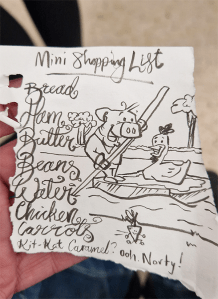 Mini Shopping List
Bread
Ham
Butter
Beans
Water
Chicken
Carrots
Kit-Kat Caramel? Ooh. Norty!